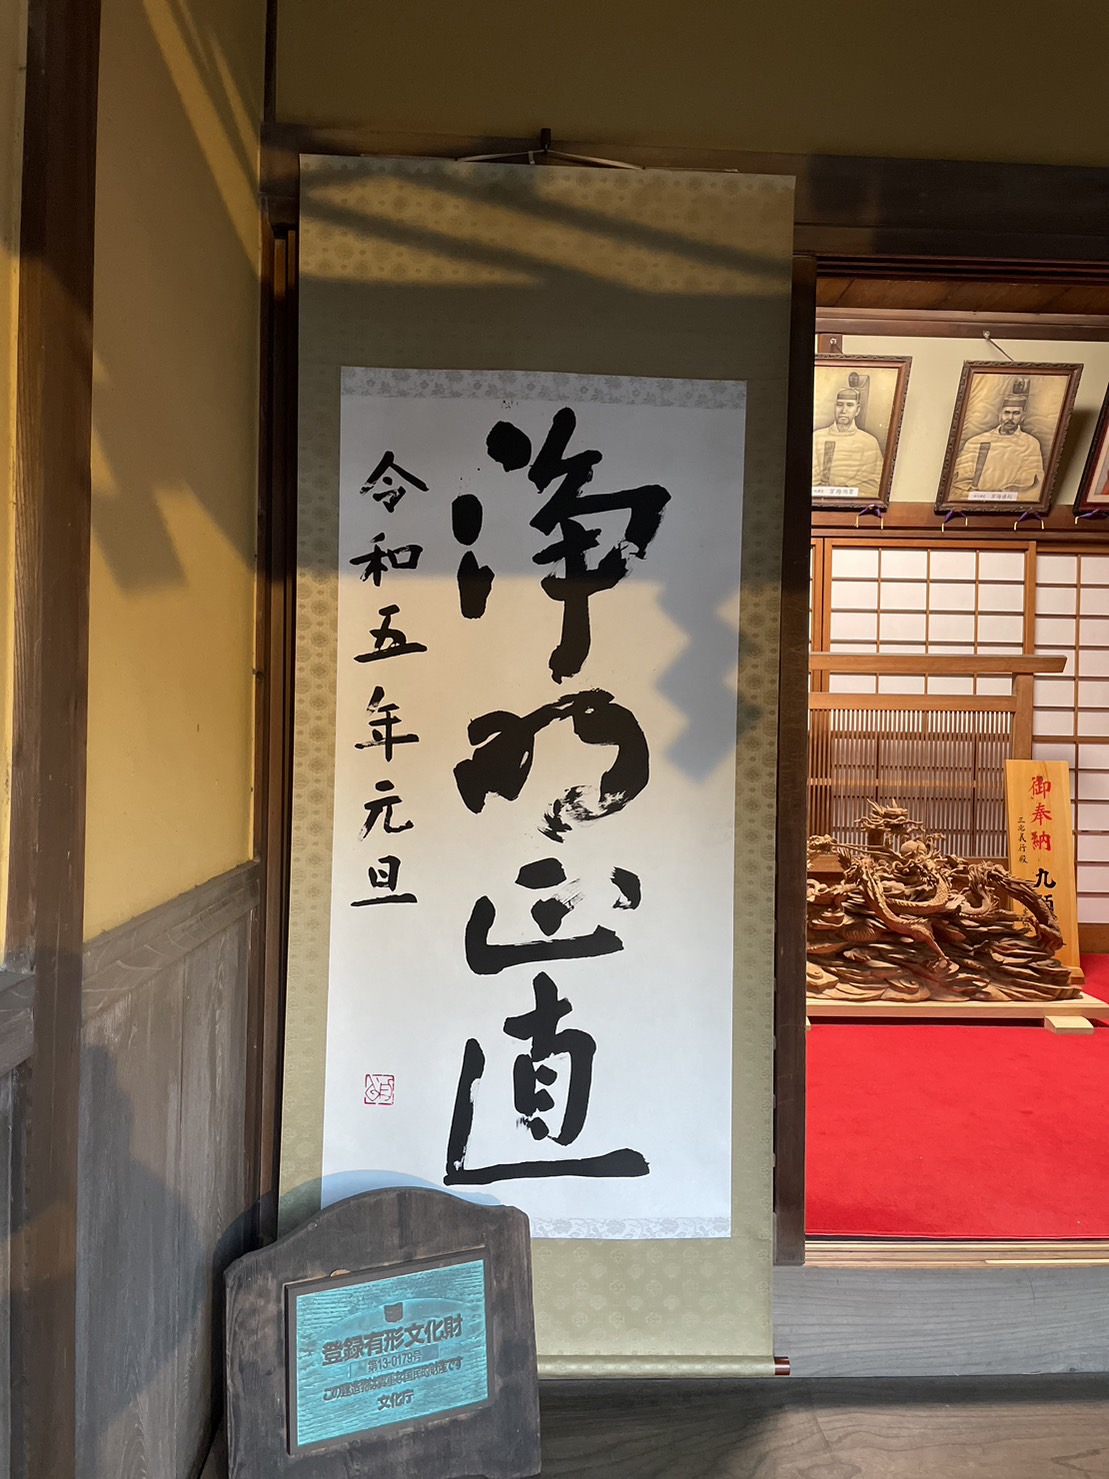 浄明正直
令和五年元旦
御奉納
三北義行殿
九
登録有形文化財
第13-0179号
この建造物は貴重な国民的財産です
文化庁